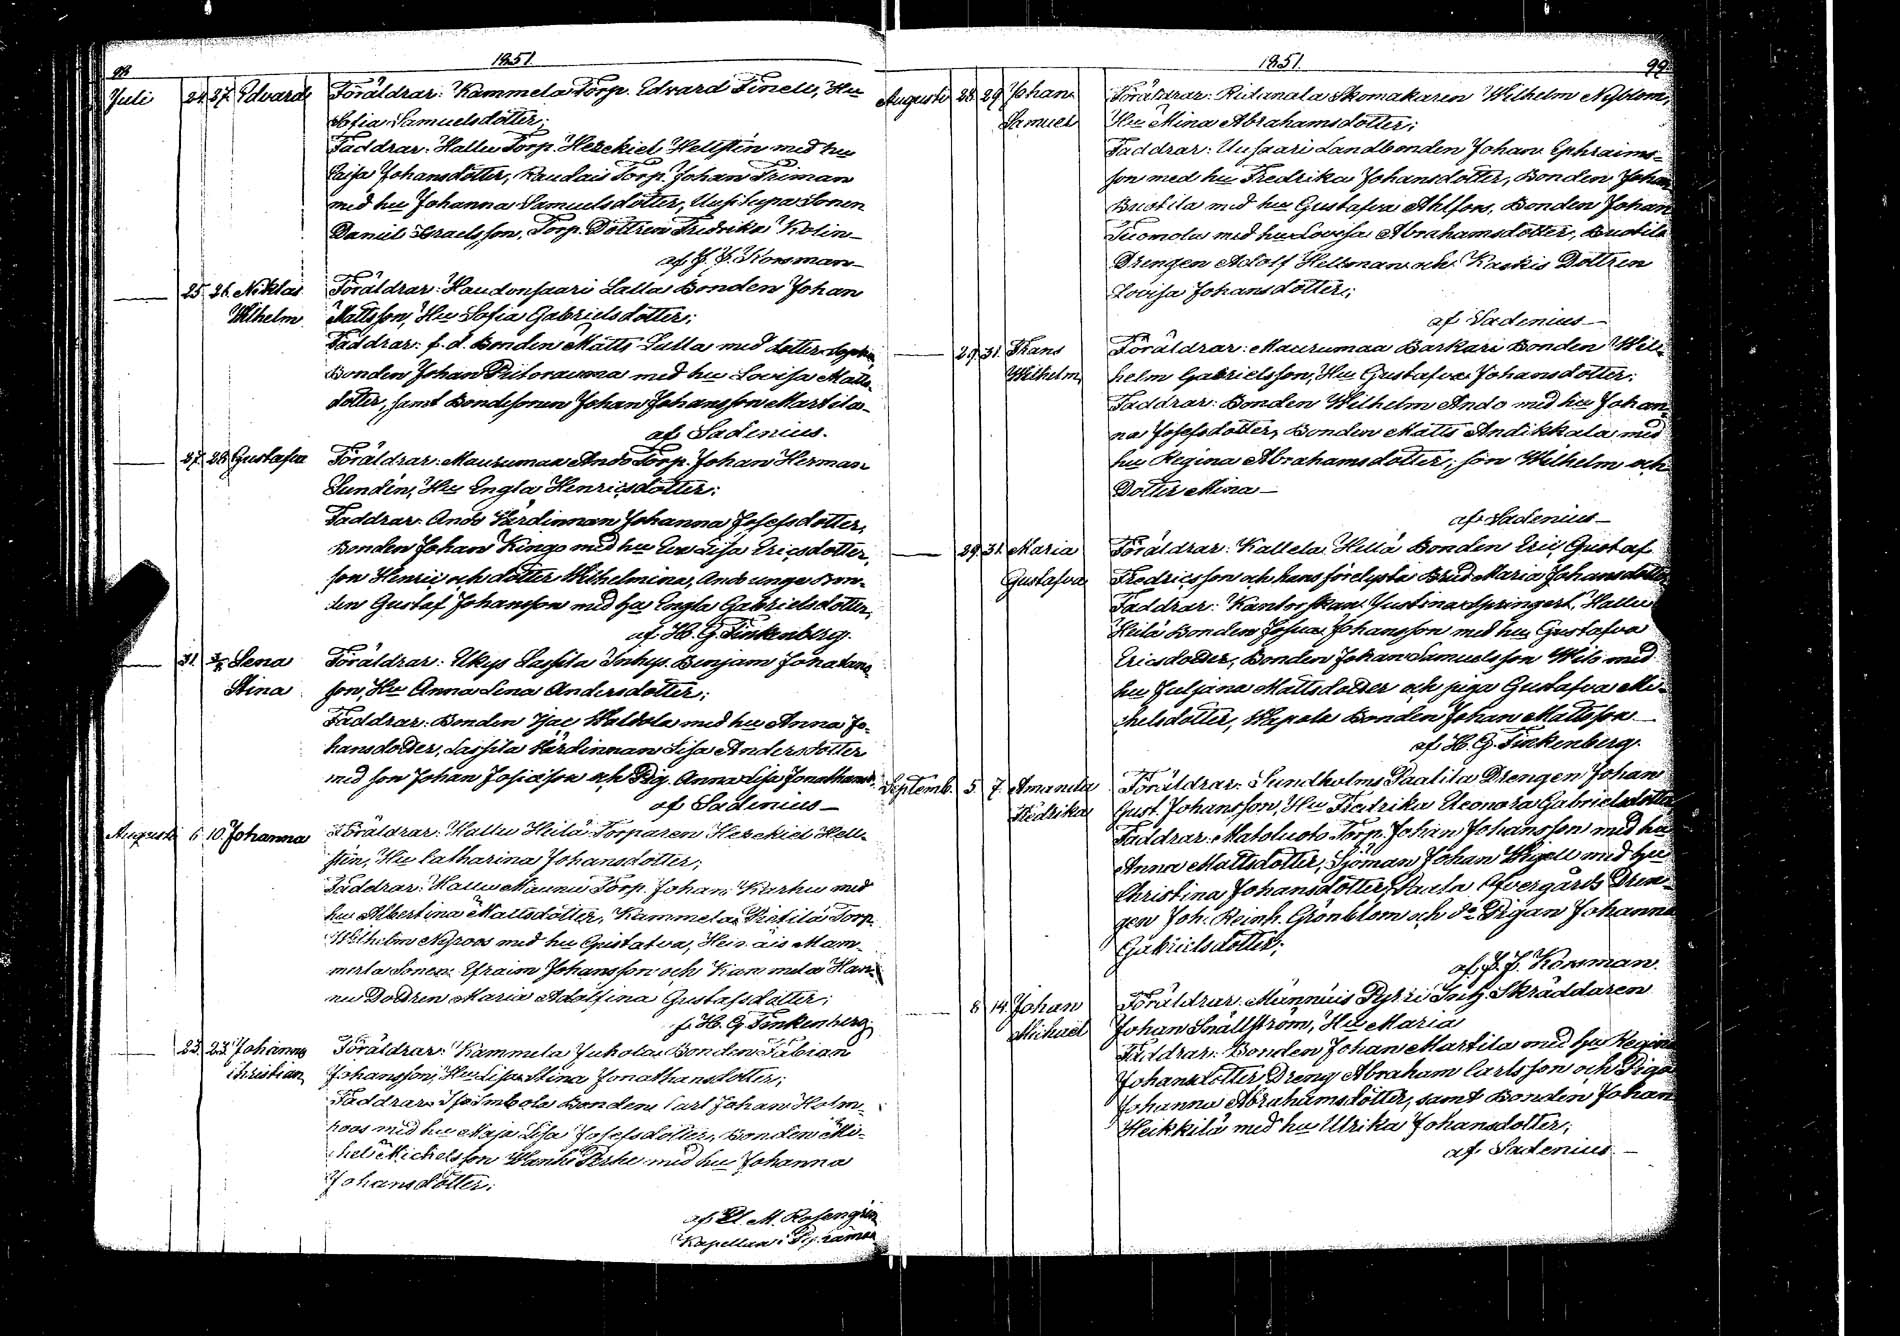 98
1851.
Juli 24. 27. Edvard Föräldrar: Kammela Torp. Edvard Finell, Hu
Sofia Samuelsdotter;
Faddrar: Hallu Torp. Hezekiel Hellstén med hu
Caisa Johansdotter, Raulais Torp. Johan Friman
med hu Johanna Samuelsdotter, Uusitupa Sonen
Daniel Israelsson, Torp. Dottren Fredrika Kolin
af J. J. Korsman
25. 26. Niklas Föräldrar: Haudonsaari Lalla Bonden Johan
Wilhelm Mattsson, Hu Sofia Gabrielsdotter;
Faddrar: f.d. Bonden Matts Lalla med dotter Sophia,
Bonden Johan Prihorauma med hu Lovisa Matts-
dotter, samt Bondesonen Johan Johansson Martila
af Sadenius.
27. 28. Gustafva Föräldrar: Maurumaa Ando Torp. Johan Herman
Sundén, Hu Engla Henricsdotter;
Faddrar: Ando Värdinnan Johanna Josefsdotter,
Bonden Johan Kingo med hu Eva Lisa Ericsdotter,
son Henric och dotter Wilhelmina, Ando unge Bon-
den Gustaf Johansson med hu Engla Gabrielsdotter,
af H. G. Finkenberg.
31. 3/8 Lena Föräldrar: Ukys Lassila Inhys. Benjam Jonathans
Stina son, Hu Anna Lena Andersdotter;
Faddrar: Bonden Isac Waldola med hu Anna Jo-
hansdotter, Lassila Värdinnan Lisa Andersdotter
med son Johan Josiasson och Pig. Anna Lisa Jonathansd.
af Sadenius
Augusti 6. 10. Johanna Föräldrar: Hallu Heilä Torparen Hezekiel Hell-
stén, Hu Catharina Johansdotter;
Faddrar: Hallu Maunu Torp. Johan Karhu med
hu Albertina Mattsdotter, Kammela Pietilä Torp.
Wilhelm Nyroos med hu Gustafva, Mam-
merla Sonen Efraim Johansson och Kammela Han-
nu Dottren Maria Adolfina Gustafsdotter;
af H. G. Finkenberg.
23. 23. Johanna Föräldrar: Kammela Juhola Bonden Fabian
Christian Johansson, Hu Lisa Stina Jonathansdotter;
Faddrar: Ispimbola Bonden Carl Johan Holm-
roos med hu Maja Lisa Josefsdotter, Bonden Mi-
chel Michelsson Wanha Perhe med hu Johanna
Johansdotter;
af M. Rosengrén
Kapellan i Pyhämaa
1851.
99
Augusti 28. 29. Johan Föräldrar: Ridanala Skomakaren Wilhelm Nyblom,
Samuel Hu Mina Abrahamsdotter;
Faddrar: Uusaari Landbonden Johan Ephraims-
son med hu Fredrika Johansdotter, Bonden Johan
Bustila med hu Gustafva Ahlfors, Bonden Johan
Tuomola med hu Lovisa Abrahamsdotter, Bustila
Drengen Adolf Hellman och Kaskis Dottren
Lovisa Johansdotter;
af Sadenius
29. 31. Frans Föräldrar: Maurumaa Barkari Bonden Wil-
Wilhelm helm Gabrielsson, Hu Gustafva Johansdotter;
Faddrar: Bonden Wilhelm Ando med hu Johan-
na Josefsdotter, Bonden Matts Andikkala med
hu Regina Abrahamsdotter, son Wilhelm och
Dotter Mina
af Sadenius
29. 31. Maria Föräldrar: Kallela Heilä Bonden Eric Gustaf
Gustafva Fredricsson och hans förelysta Brud Maria Johansdotter
Faddrar: Kantorskan Justina Springert, Hallu
Heilä Bonden Josua Johansson med hu Gustafva
Ericsdotter, Bonden Johan Samuelsson Wilo med
hu Juljana Mattsdotter och piga Gustafva Mi-
chelsdotter, Hapola Bonden Johan Mattsson
af H. G. Finkenberg.
Septemb. 5. 7. Amanda Föräldrar: Sundholms Paalila Drengen Johan
Fredrika Gust. Johansson, Hu Fredrika Eleonora Gabrielsdotter
Faddrar: Mataluoto Torp. Johan Johansson med hu
Anna Mattsdotter, Sjöman Johan Wigell med hu
Christina Johansdotter, Paala Ofvergårds Dren-
gen Joh. Reinh. Grönblom och do Pigan Johanna
Gabrielsdotter;
af J. J. Korsman.
8. 14. Johan Föräldrar: Männäis Pyrri Inh. Skräddaren
Michael Johan Snällström, Hu Maria
Faddrar: Bonden Johan Martila med hu Regina
Johansdotter, Dreng Abraham Carlsson och Piga
Johanna Abrahamsdotter, samt Bonden Johan
Heikkilä med hu Ulrika Johansdotter;
af Sadenius.